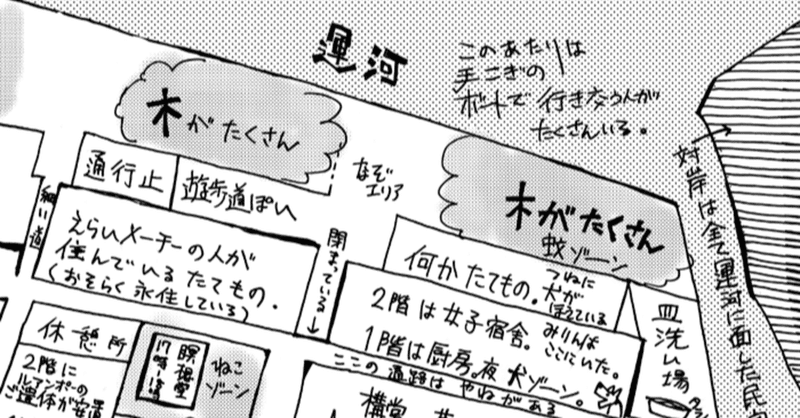 運河
このあたりは
手こぎの
ボートで行きかう人が
たくさんいる。
対岸は全て運河に面した民
木がたくさん
木がたくさん
蚊ゾーン
なぞ
エリア
通行止
遊歩道ぽい
細い道
閉まっている
えらいメーチーの人が
住んでいるたてもの.
(おそらく永住している)
何かたてもの.
つねに
犬が
ほえている
2階は女子宿舎.
みりんも
ここにいた.
1階は厨房。夜犬ゾーン。
皿洗い場
ここの通路はやねがある
休憩所
2階に
ルアンポーの
ご遺体が安置
瞑想堂
ねこ
ゾーン
講堂